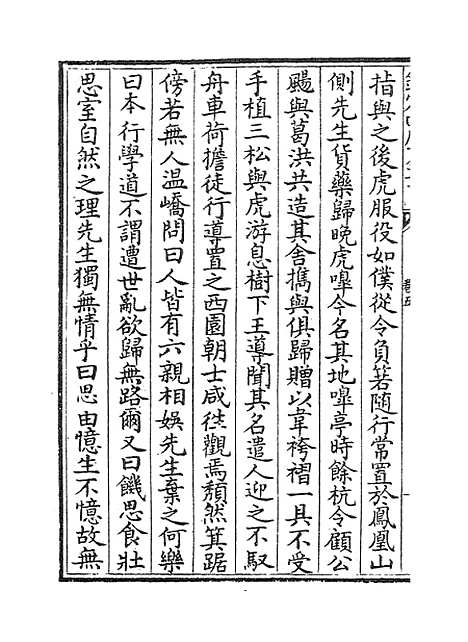 措與之後虎服役如僕從令負箬隨行常置於鳳凰山
側先生貨藥歸晚虎嘷今名其地嘷亭時餘杭令顧公
颺與葛洪共造其舍擕與俱歸贈以韋袴褶一具不受
手植三松與虎游息樹下王導聞其名遣人迎之不馭
舟車荷擔徒行導置之西園朝士咸徃觀焉頽然箕踞
傍若無人温嶠問曰人皆有六親相娛先生棄之何樂
曰本行學道不謂遭世亂欲歸無路爾又曰饑思食壯
思室自然之理先生獨無情乎曰思由憶生不憶故無